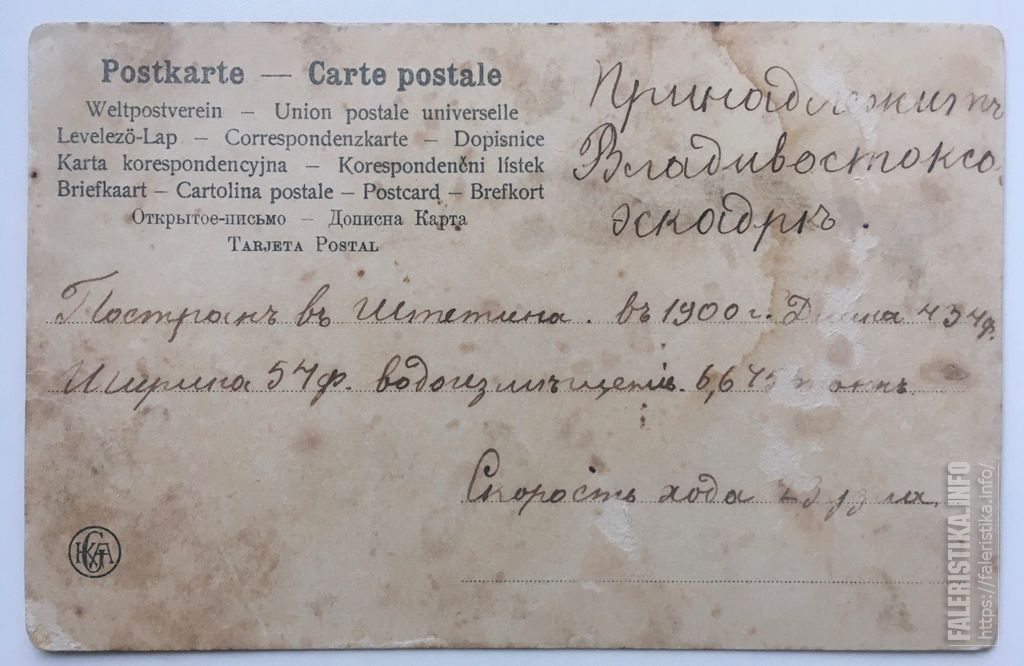 Postkarte — Carte postale
Weltpostverein – Union postale universelle
Levelező-Lap – Correspondenzkarte – Dopisnice
Karta korespondencyjna – Korespondenčni lístek
Briefkaart – Cartolina postale – Postcard – Brefkort
Открытое-письмо – Дописна Карта
Tarjeta Postal
Принадлежитъ
Владивостокско
эскадрѣ.
Построенъ въ Штетина. въ 1900 г. Длина 434 ф.
Ширина 54 ф. водоизмѣщеніе. 6,675 тоннъ
Скорость хода 23 узла
FALERISTIKA.INFO
https://faleristika.info/